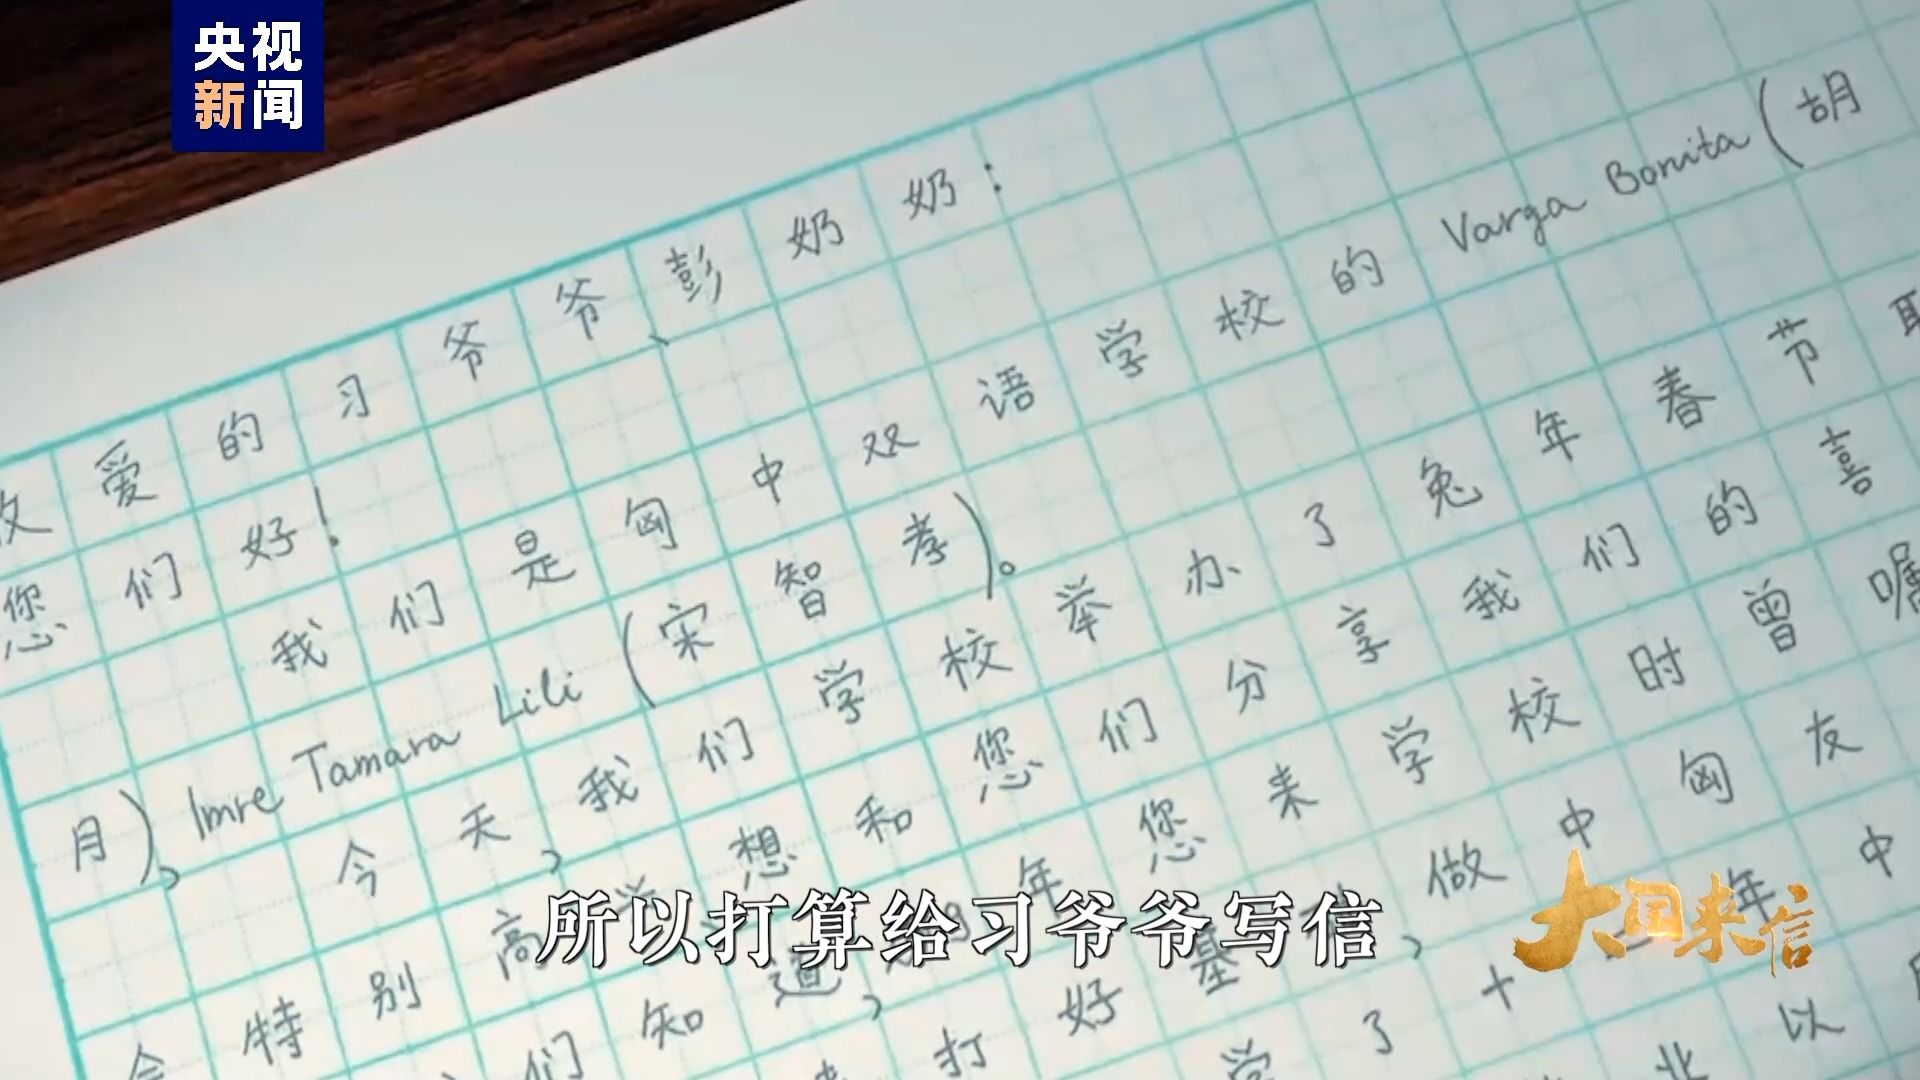 央视
新闻
敬爱的习爷爷、彭奶奶：
您们好！
我们是匈中双语学校的Varga Bonita(胡
月)、Imre Tamara Lili(宋智孝)。
今天，我们学校举办了兔年春节联
特别高兴，想和您们分享我们的喜
们知道，年您来学校时曾嘱
打好基，做中匈友
学了十二年中
以
所以打算给习爷爷写信
大国来信